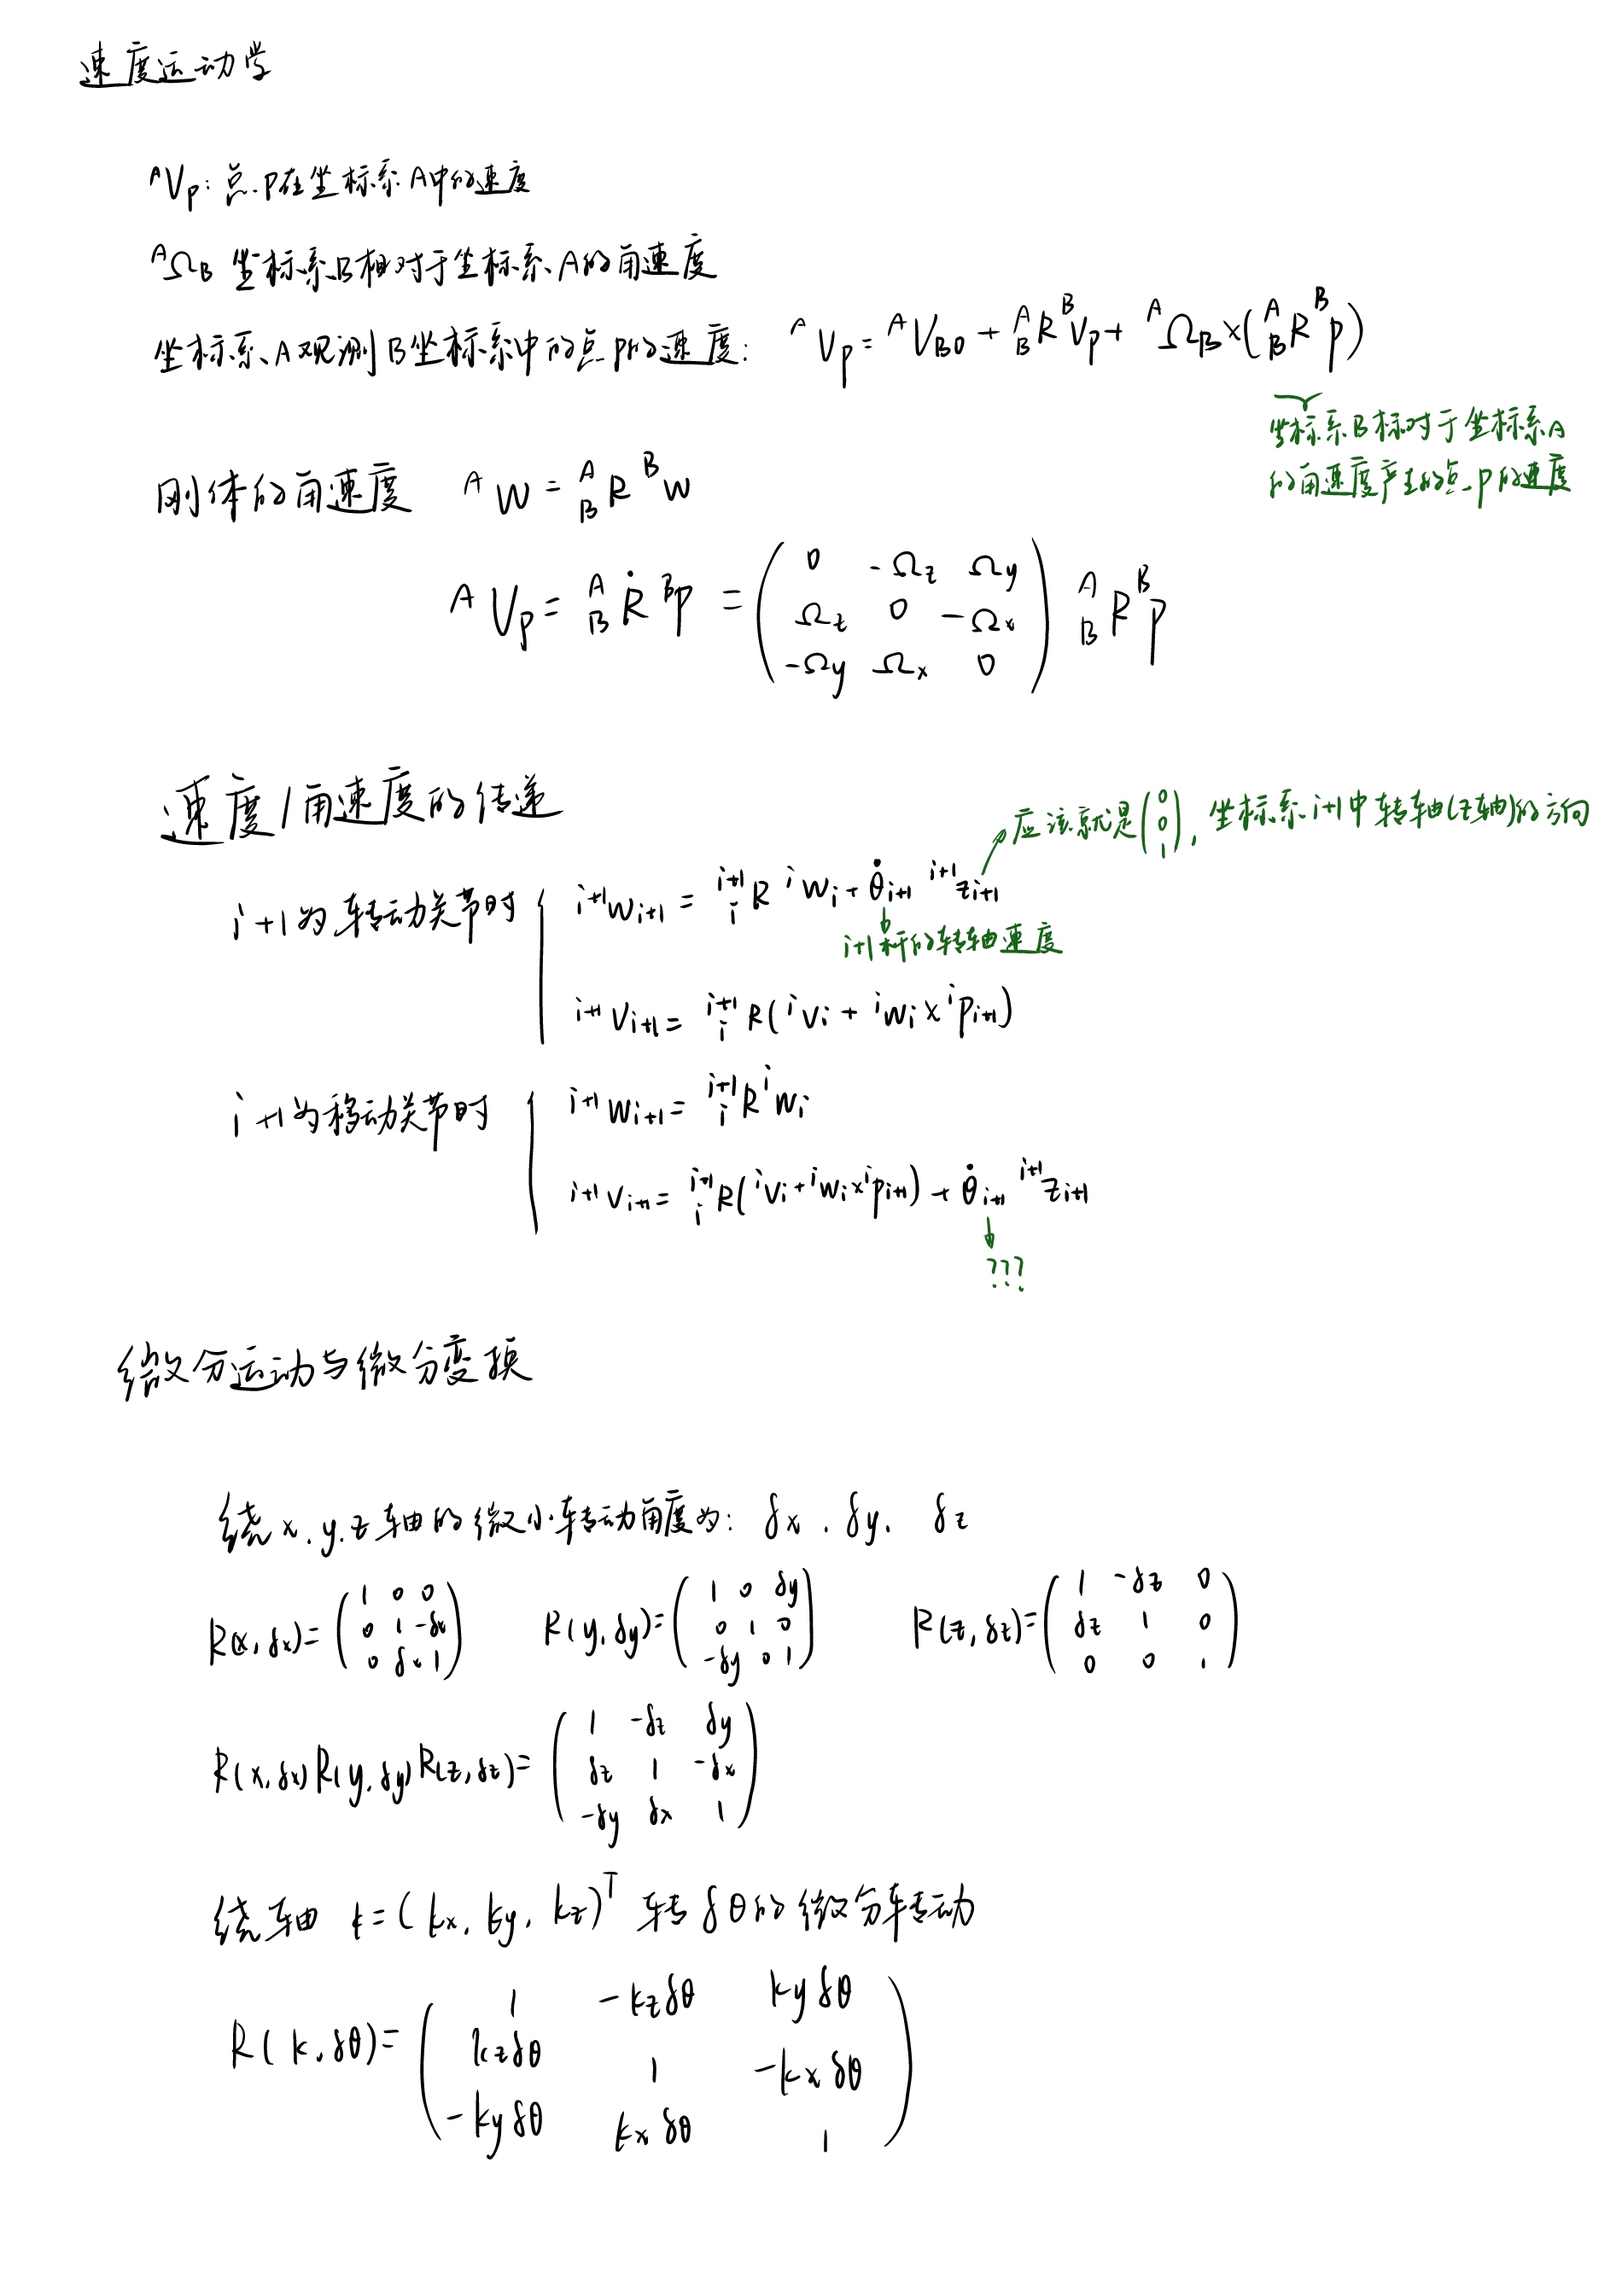 速度运动学
ᴬV_P: 点P在坐标系A中的速度
ᴬΩ_B 坐标系B相对于坐标系A的角速度
坐标系A观测B坐标系中的点P的速度: ᴬV_P = ᴬV_BO + ᴬ_B R ᴮV_P + ᴬΩ_B × (ᴬ_B R ᴮP)
坐标系B标对于坐标系A
的角速度产生的点P的速度
刚体的角速度 ᴬW = ᴬ_B R ᴮW
ᴬV_P = ᴬ_B Ṙ ᴮP = ( 0 -Ωz Ωy ; Ωz 0 -Ωx ; -Ωy Ωx 0 ) ᴬ_B R ᴮP
速度/角速度的传递
应该就是(0 0 1), 坐标系i+1中转轴(z轴)的方向
i+1为转动关节时 { ^{i+1}w_{i+1} = ^{i+1}_i R ^i w_i + θ̇_{i+1} ^{i+1}z_{i+1}
i+1杆的转轴速度
^{i+1}v_{i+1} = ^{i+1}_i R( ^i v_i + ^i w_i × ^i p_{i+1} )
i+1为移动关节时 { ^{i+1}w_{i+1} = ^{i+1}_i R ^i w_i
^{i+1}v_{i+1} = ^{i+1}_i R( ^i v_i + ^i w_i × ^i p_{i+1} ) + θ̇_{i+1} ^{i+1}z_{i+1}
???
微分运动与微分变换
绕x.y.z轴的微小转动角度为: δx . δy. δz
R(x, δx) = ( 1 0 0 ; 0 1 -δx ; 0 δx 1 ) R(y, δy) = ( 1 0 δy ; 0 1 0 ; -δy 0 1 ) R(z, δz) = ( 1 -δz 0 ; δz 1 0 ; 0 0 1 )
R(x, δx) R(y, δy) R(z, δz) = ( 1 -δz δy ; δz 1 -δx ; -δy δx 1 )
绕轴 k = (kx, ky, kz)ᵀ 转δθ的微分转动
R(k, δθ) = ( 1 -kzδθ kyδθ ; kzδθ 1 -kxδθ ; -kyδθ kxδθ 1 )